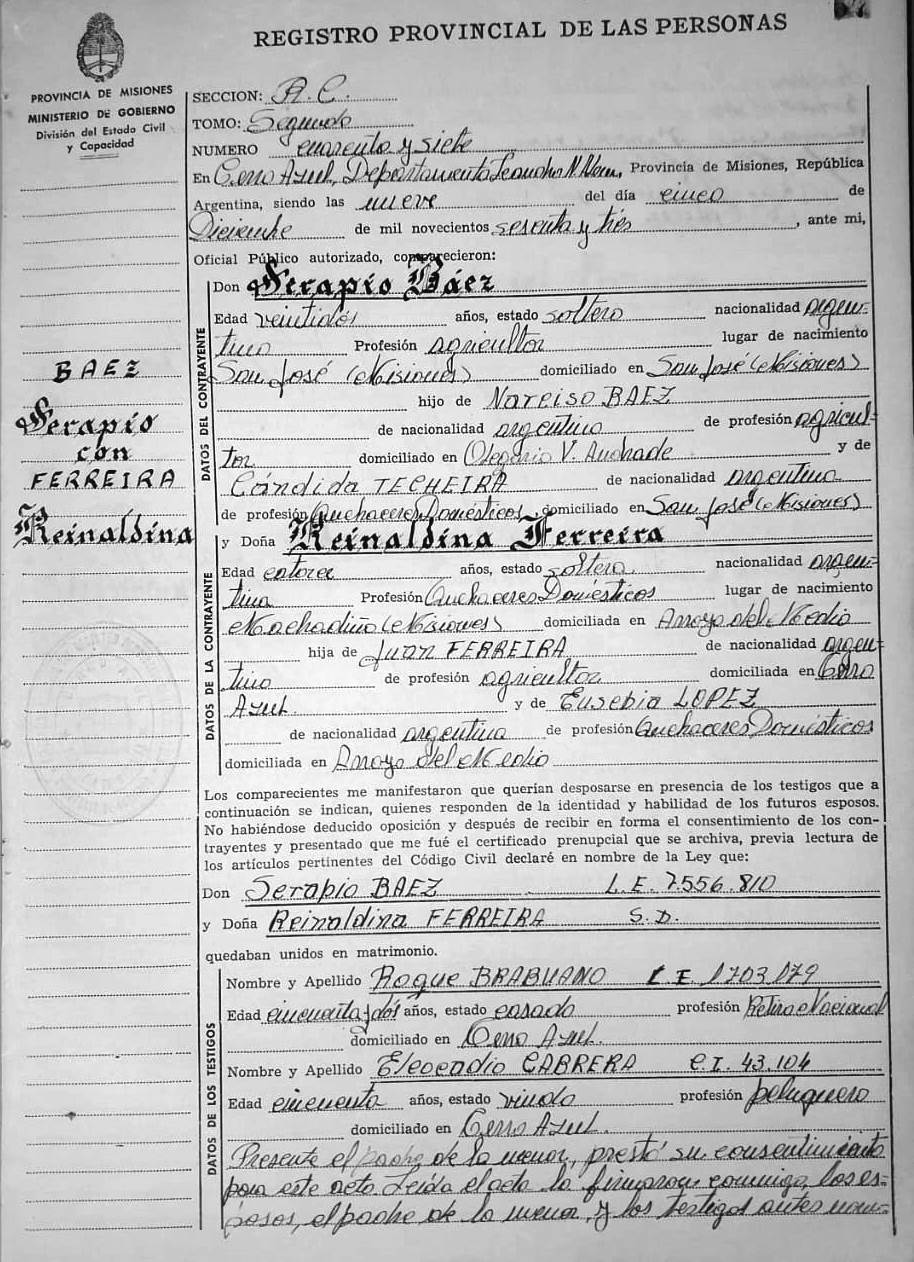 REGISTRO PROVINCIAL DE LAS PERSONAS
PROVINCIA DE MISIONES
MINISTERIO DE GOBIERNO
División del Estado Civil
y Capacidad
BAEZ
Serapio
con
FERREIRA
Reinaldina
SECCION: R.C.
TOMO: Segundo
NUMERO cuarenta y siete
En Cerro Azul, Departamento Leandro N. Alem, Provincia de Misiones, República
Argentina, siendo las nueve del día cinco de
Diciembre de mil novecientos sesenta y trés, ante mi,
Oficial Público autorizado, comparecieron:
DATOS DEL CONTRAYENTE
Don Serapio Báez
Edad veintidós años, estado soltero nacionalidad argen-
tino Profesión agricultor lugar de nacimiento
San José (Misiones) domiciliado en San José (Misiones)
hijo de Narciso BAEZ
de nacionalidad argentino de profesión agricul-
tor domiciliado en Olegario V. Andrade y de
Cándida TECHEIRA de nacionalidad argentina
de profesión Quehaceres Domésticos, domiciliado en San José (Misiones)
DATOS DE LA CONTRAYENTE
y Doña Reinaldina Ferreira
Edad catorce años, estado soltera nacionalidad argen-
tina Profesión Quehaceres Domésticos lugar de nacimiento
Machadiño (Misiones) domiciliada en Arroyo del Medio
hija de Juan FERREIRA de nacionalidad argen-
tino de profesión agricultor domiciliada en Cerro
Azul y de Eusebia LOPEZ
de nacionalidad argentina de profesión Quehaceres Domésticos
domiciliada en Arroyo del Medio
Los comparecientes me manifestaron que querían desposarse en presencia de los testigos que a
continuación se indican, quienes responden de la identidad y habilidad de los futuros esposos.
No habiéndose deducido oposición y después de recibir en forma el consentimiento de los con-
trayentes y presentado que me fué el certificado prenupcial que se archiva, previa lectura de
los artículos pertinentes del Código Civil declaré en nombre de la Ley que:
Don Serapio BAEZ L.E. 7.556.810
y Doña Reinaldina FERREIRA S.D.
quedaban unidos en matrimonio.
DATOS DE LOS TESTIGOS
Nombre y Apellido Roque L.E. 1703179
Edad cincuenta y dós años, estado casado profesión Retiro Nacional
domiciliado en Cerro Azul.
Nombre y Apellido Eleocadio CABRERA C.I. 43.104
Edad cincuenta años, estado viudo profesión peluquero
domiciliado en Cerro Azul.
Presente el padre de la menor, prestó su consentimiento
para este acto. Leída el acta la firmaron conmigo, los es-
posos, el padre de la menor, y los testigos antes nom-